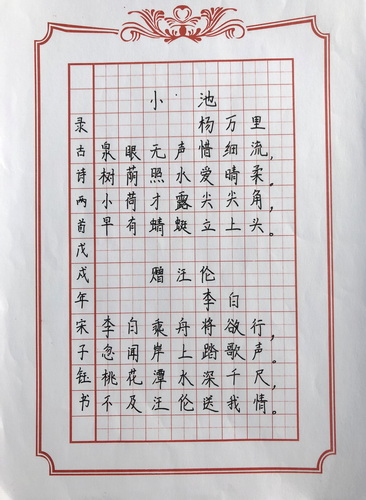 小池
杨万里
泉眼无声惜细流，
树荫照水爱晴柔。
小荷才露尖尖角，
早有蜻蜓立上头。
赠汪伦
李白
李白乘舟将欲行，
忽闻岸上踏歌声。
桃花潭水深千尺，
不及汪伦送我情。
录古诗两首戊戌年宋子钰书